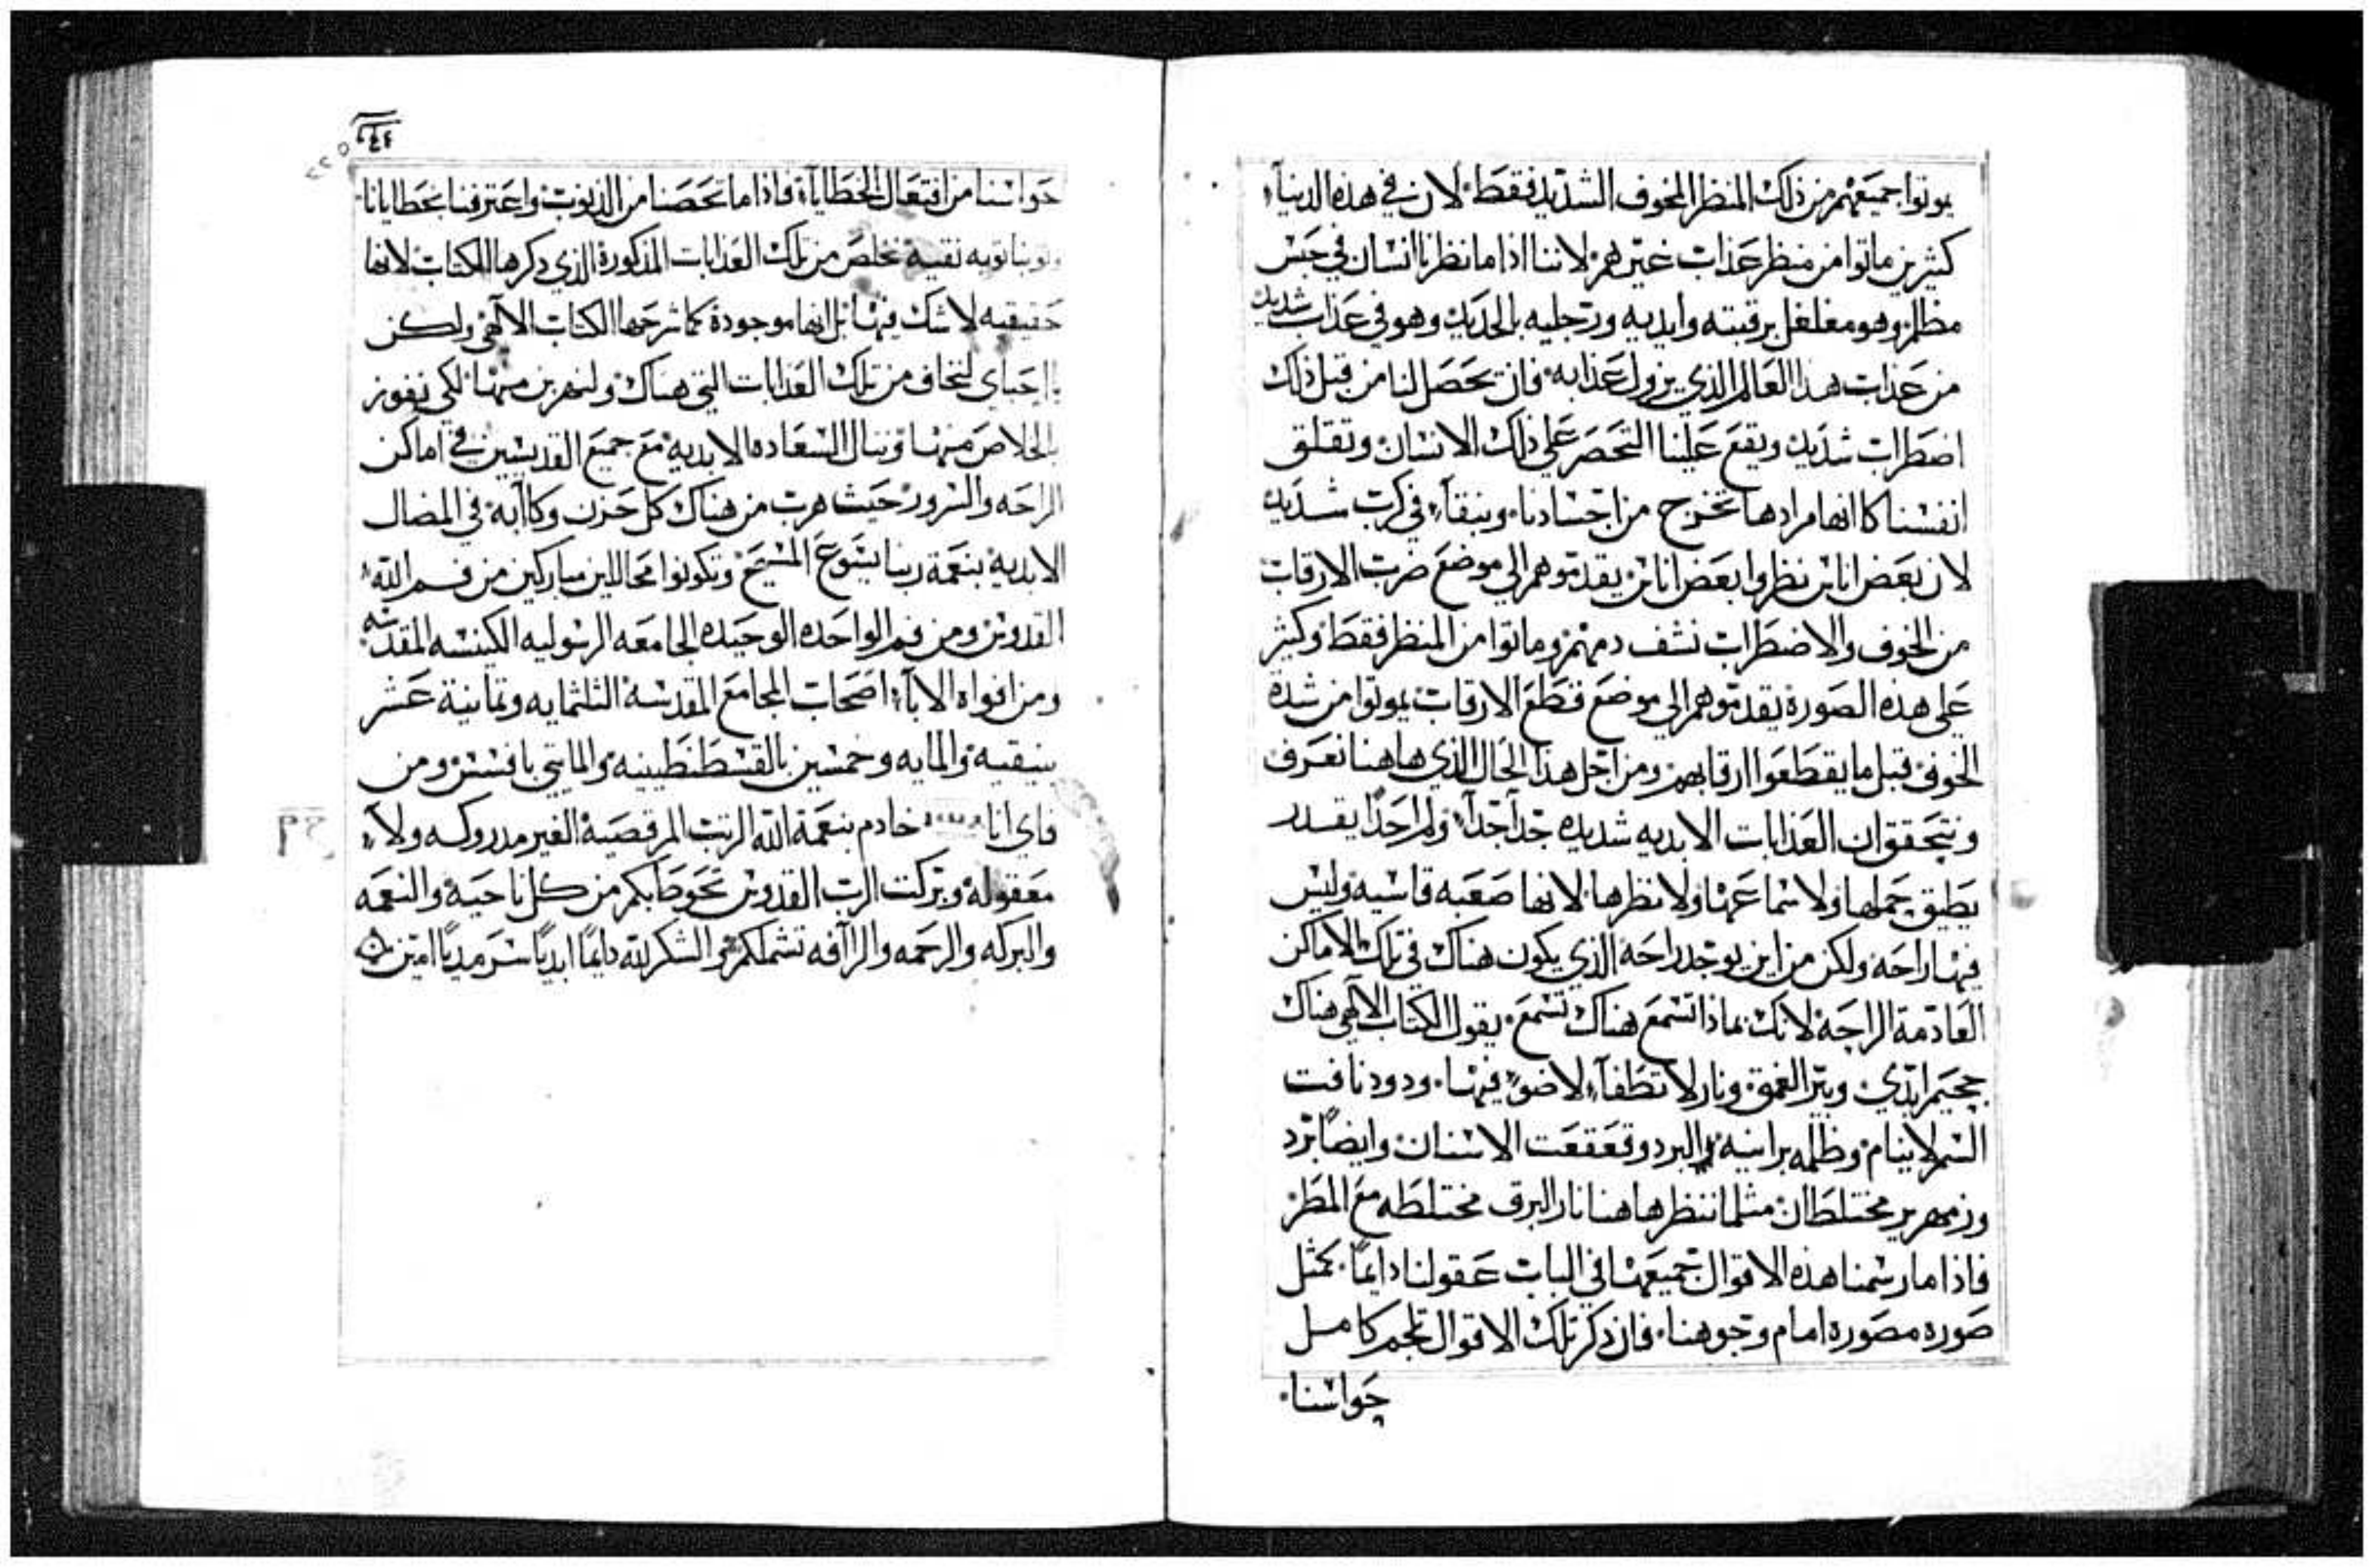 يموتوا جميعهم من ذلك المنظر المخوف الشديد فقط. لان في هذه الدنيآء
كثيرين ماتوا من منظر عذاب غيرهم. لاننا اذا ما نظرنا انسان في حبس
مظلم وهو مغلغل برقبته وايديه ورجليه بالحديد وهو في عذاب شديد
من عذاب هذا العالم الذي يزول عذابه. فان يحصل لنا من قبل ذلك
اضطراب شديد ويقع علينا التحصر علي ذلك الانسان وتقلق
انفسنا كانها مرادها تخرج من اجسادنا. ونبقآء في كرب شديد
لان بعض اناس نظروا بعض اناس يقدموهم الي موضع ضرب الارقاب
من الخوف والاضطراب نشف دمهم وماتوا من المنظر فقط وكثير
علي هذه الصورة يقدموهم الي موضع قطع الارقاب يموتوا من شدة
الخوف قبل ما يقطعوا ارقابهم ومن اجل هذا الحال الذي هاهنا نعرف
ونتحقق ان العذابات الابديه شديده جداً جداً ولم احداً يقدر
يطيق حملها ولا سماعها ولا نظرها لانها صعبه قاسيه وليس
فيها راحه ولكن من اين يوجد راحة الذي يكون هناك في تلك الاماكن
العادمة الراحة لانك بماذا تسمع هناك تسمع. يقول الكتاب الالهي هناك
جحيم ابدي وبير الغمق ونار لا تطفآء لا ضوء فيها. ودود نافت
السم لا ينام وظلمه برانيه البرد وقعقعت الاسنان وايضاً برد
وزمهرير مختلطان مثلما ننظر هاهنا نار البرق مختلطه مع المطر
فاذا ما رسمنا هذه الاقوال جميعها في الباب عقولنا دايماً. كمثل
صوره مصوره امام وجوهنا. فان ذكر تلك الاقوال تلجم كامل
حواسنا.
حواسنا من افتعال الخطايآء فاذا ما تحصنا من الذنوب واعترفنا بخطايانا
وتوبنا توبه نقيه نخلص من تلك العذابات المذكورة الذي ذكرها الكتاب لانها
حقيقيه لا شك فيها بل انها موجودة كما شرحها الكتاب الالهي ولكن
يا احباي لنخاف من تلك العذابات التي هناك ولنهرب منها لكي نفوز
بالخلاص منها وننال السعاده الابديه مع جميع القديسين في اماكن
الراحه والسرور حيث هرب من هناك كل حزن وكاآبه في المضال
الابديه بنعمة ربنا يسوع المسيح وتكونوا محاللين مباركين من فم الله
القدوس ومن فم الواحده الوحيده الجامعه الرسوليه الكنسه المقدسه
ومن افواه الابآء اصحاب المجامع المقدسة الثلثمايه وثمانية عشر
بنيقيه والمايه وخمسين بالقسطنطينيه والمايتي بافسس ومن
فاي انا خادم بنعمة الله الرتب المرقصية الغير مدروكه ولا
معقوله وبركت الرب القدوس تحوط بكم من كل ناحية والنعمه
والبركه والرحمه والراآفه تشملكم والشكر لله دايماً ابدياً سرمدياً امين